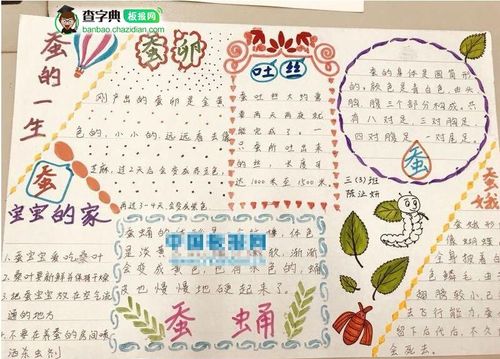 查字典 板报网
banbao.chazidian.com
蚕的一生
蚕卵
刚产出的蚕卵是金黄
色的，小小的，远远看去像
芝麻，过2天后会变成
再过3-4天，会变成紫色
吐丝
蚕吐丝大约需
要两天两夜就
能完成了。一
只蚕所吐出来
的丝，长度可
达1000米至1500米
蚕的身体是圆筒形
的，颜色是青白色，由头
胸、腹三个部分构成，只
有八对足，三对胸足，
四对腹足，一对尾足。
蚕
三(3)班
陈
蚕
宝宝的家
1.蚕宝宝爱吃桑叶
2.桑叶要新鲜并保持干燥
3.把蚕宝宝放在空气流
通的地方
4.不要在养蚕的房间喷
洒杀虫剂
中国板报网
色
是淡黄
渐渐
会变成黄色，也
的蛹
皮也慢慢地硬起来了。
蚕蛹
蚕蛾
蚕蛾形
像蝴蝶
全身披着白
色鳞毛，由
翅膀较小已
去飞行能力，蚕
留下后代后，不久
会死去。